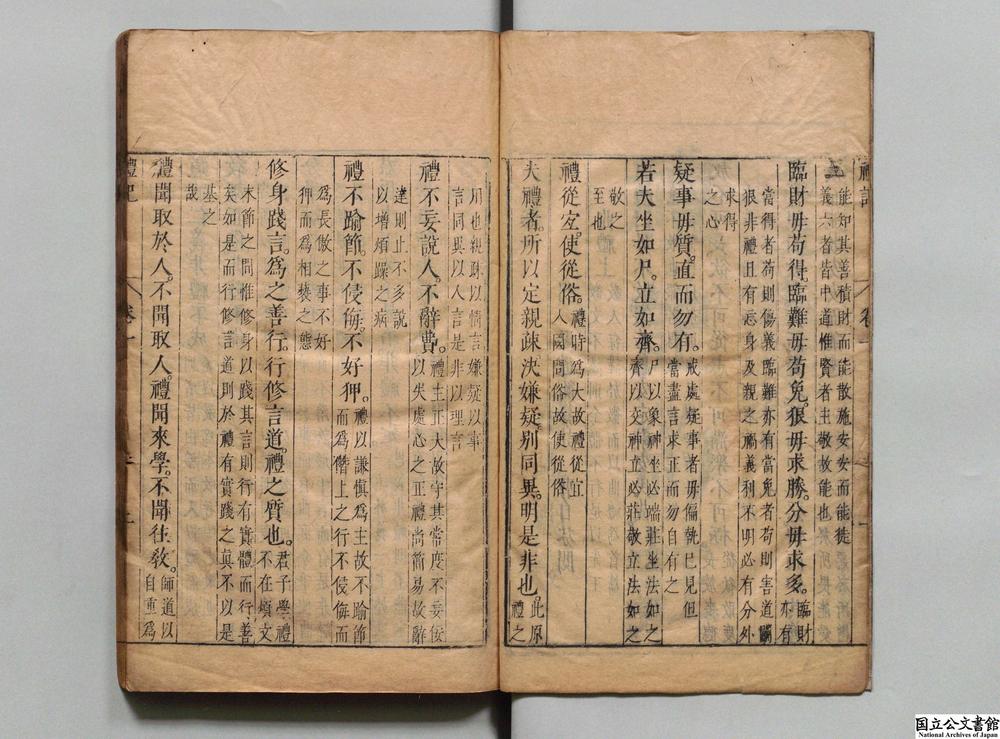 禮記
卷一
能知其善積財而能散施安安而能徙
義六者皆中道惟賢者主敬故能也
臨財毋苟得。臨難毋苟免。狠毋求勝。分毋求多。臨財亦有
當得者苟則傷義臨難亦有當免者苟則害道鬭
狠非禮且有忘身及親之禍義利不明必有分外
求得之心
疑事毋質。直而勿有。戒處疑事者毋偏執巳見但當盡言求正而勿自有之
若夫坐如尸。立如齊。尸以象神坐必端莊坐法如之齊以交神立必莊敬立法如之
敬之至也
禮從宜。使從俗。禮時爲大故禮從宜入國問俗故使從俗
夫禮者。所以定親疎。決嫌疑。別同異。明是非也。此原禮之
用也親疎以情言嫌疑以事
言同異以人言是非以理言
禮不妄說人。不辭費。禮主正大故守其常度不妄佞以失處心之正禮尚簡易故辭
達則止不多說
以增煩躁之病
禮不踰節。不侵侮。不好狎。禮以謙慎爲主故不踰節而爲僭上之行不侵侮而
爲長傲之事不好
狎而爲相褻之態
修身踐言。爲之善行。行修言道。禮之質也。君子學禮不在煩文
末節之間惟修身以踐其言則行有實體而行善
矣如是而行修言道則於禮有實踐之真不以是
基之哉
禮聞取於人。不聞取人。禮聞來學。不聞往教。師道以自重爲
禮記
卷一
国立公文書館
National Archives of Japan